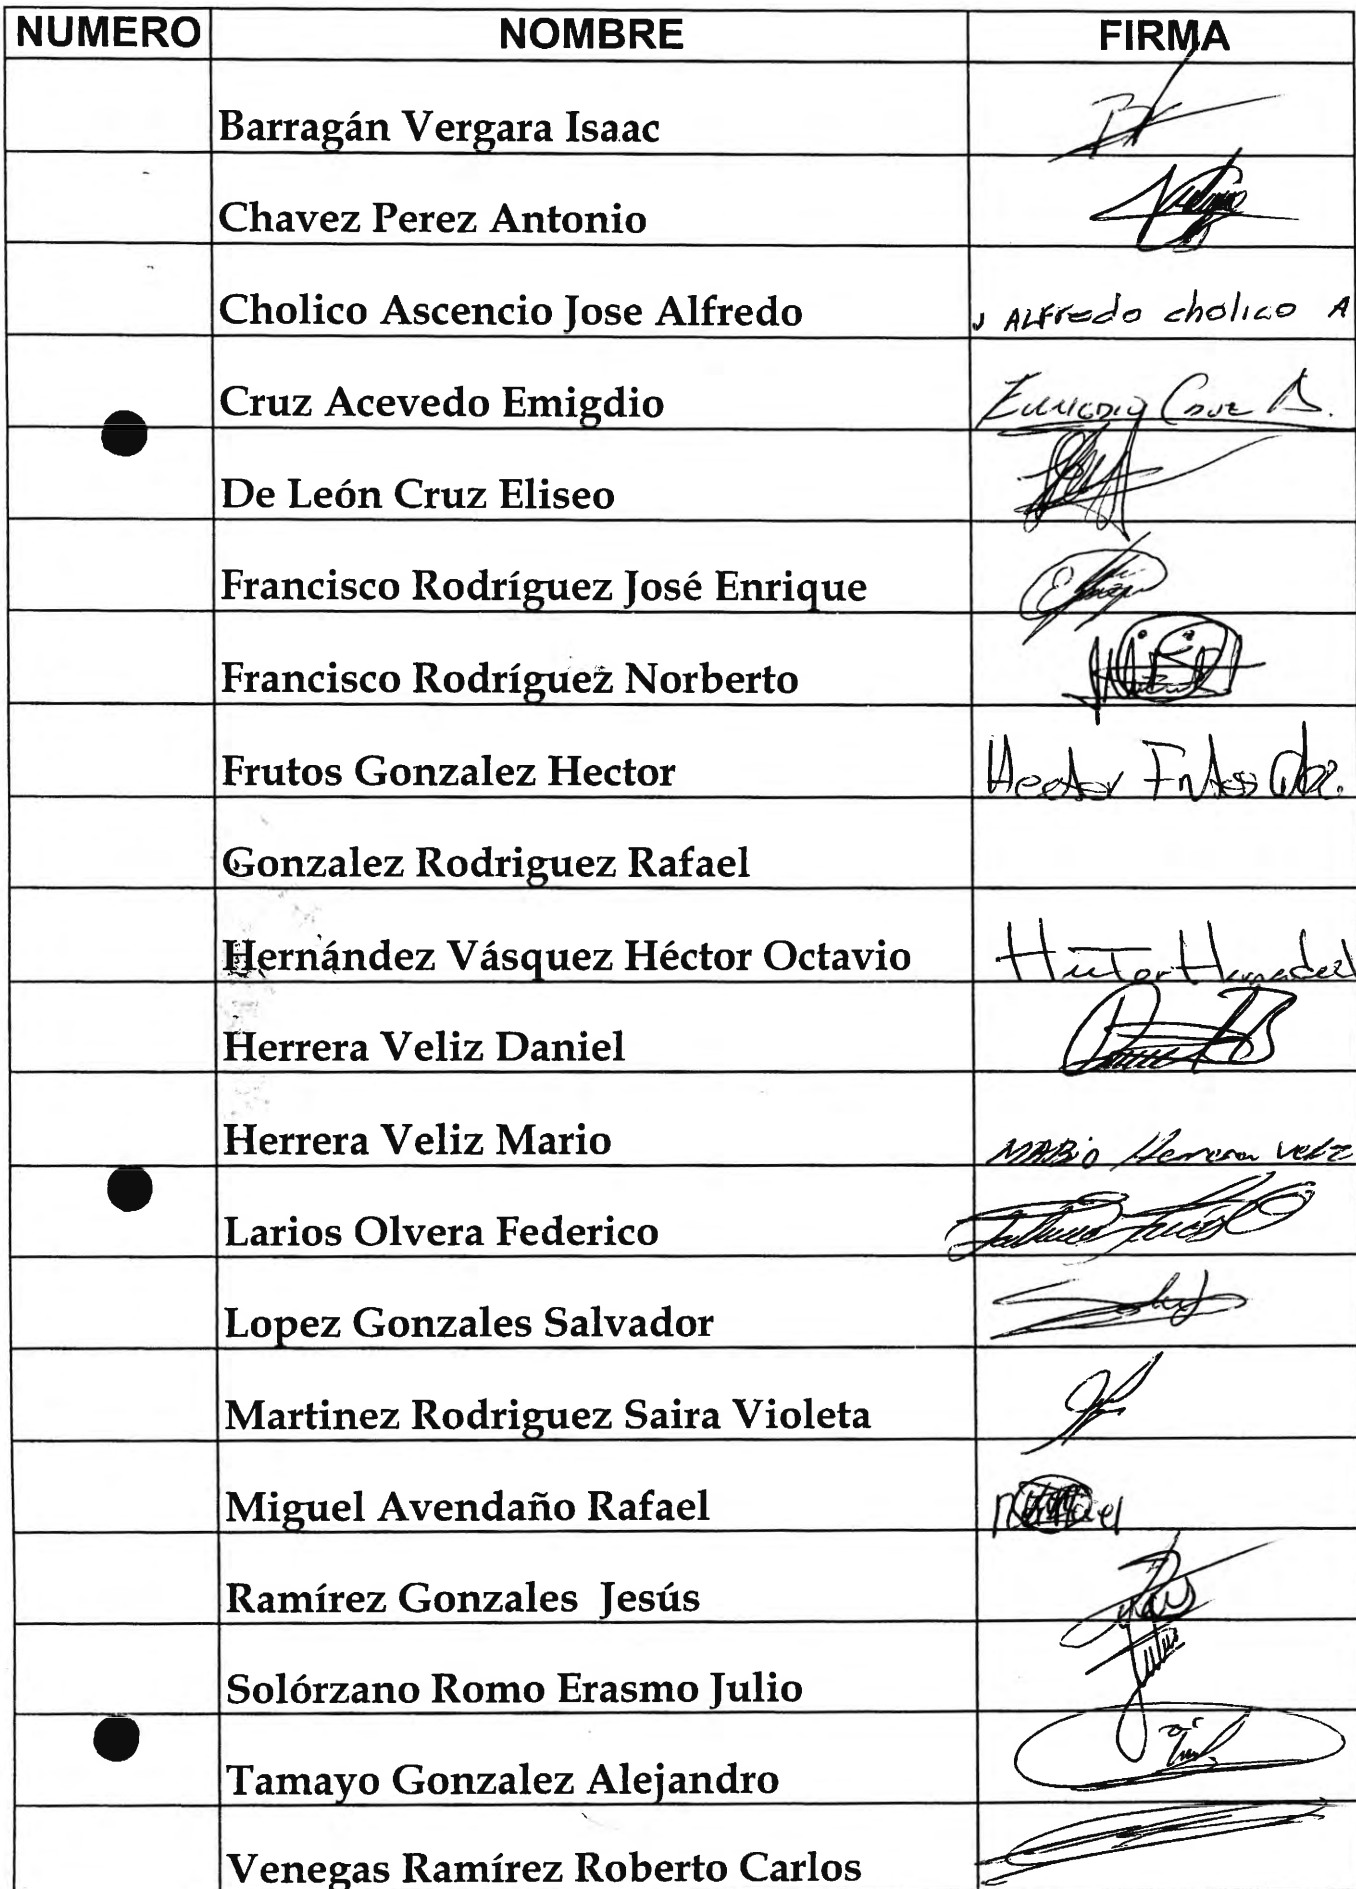 NUMERO NOMBRE FIRMA
Barragán Vergara Isaac
Chavez Perez Antonio
Cholico Ascencio Jose Alfredo J ALFredo cholico A
Cruz Acevedo Emigdio Emigdio Cruz A.
De León Cruz Eliseo
Francisco Rodríguez José Enrique
Francisco Rodríguez Norberto
Frutos Gonzalez Hector Hector Frutos
Gonzalez Rodriguez Rafael
Hernández Vásquez Héctor Octavio
Herrera Veliz Daniel
Herrera Veliz Mario MARiO Herrera Veliz
Larios Olvera Federico
Lopez Gonzales Salvador
Martinez Rodriguez Saira Violeta
Miguel Avendaño Rafael
Ramírez Gonzales Jesús
Solórzano Romo Erasmo Julio
Tamayo Gonzalez Alejandro
Venegas Ramírez Roberto Carlos